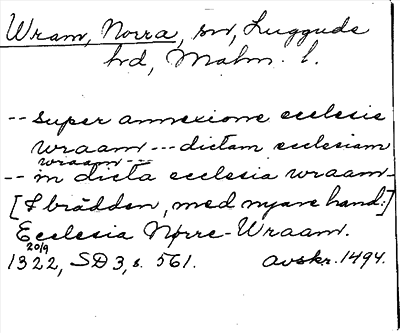 Wram, Norra, sn, Luggude
hd, Malm. l.
-- super annexione ecclesie
wraam --- dictam ecclesiam
wraam ---
-- in dicta ecclesia wraam -
[I brädden, med nyare hand:]
Ecclesia Nørre-Wraam.
20/9
1322, SD 3, s. 561. Avskr. 1494.